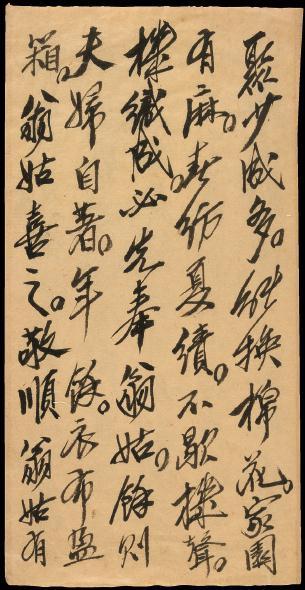 聚少成多。能換棉花。家園
有麻。春紡夏績。不歇機聲。
機織成。必先奉翁姑。餘則
夫婦自著。年餘。衣布盈
箱。翁姑喜之。敬順翁姑有